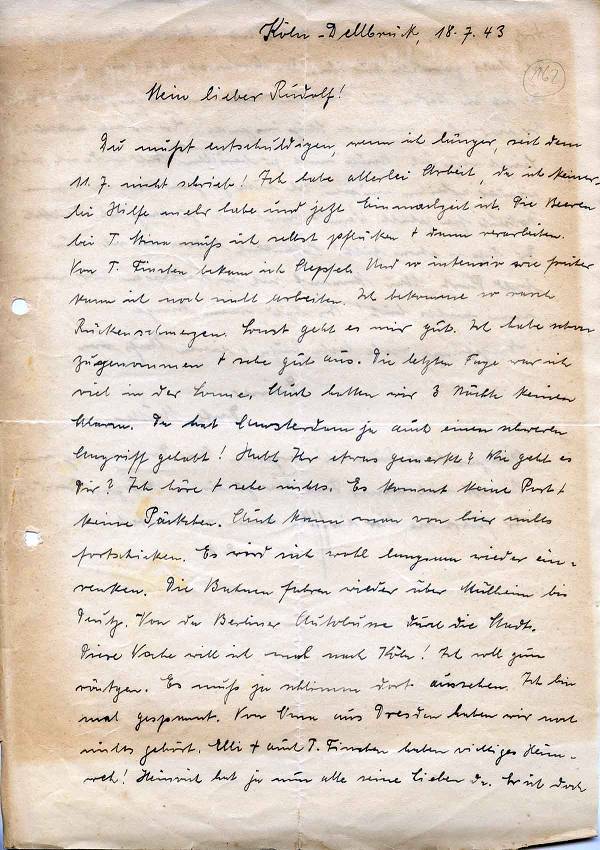 Köln-Dellbrück, 18.7.43
1167
Mein lieber Rudolf!
Du mußt entschuldigen, wenn ich länger, seit dem
11.7. nicht schrieb! Ich habe allerlei Arbeit, da ich keiner-
lei Hilfe mehr habe und jetzt Einmachzeit ist. Die Beeren
bei T. Minna muß ich selbst pflücken + dann verarbeiten.
Von T. Finchen bekam ich Aepfel. Und so intensiv wie früher
kann ich noch nicht arbeiten. Ich bekomme so rasch
Rückenschmerzen. Sonst geht es mir gut. Ich habe schon
zugenommen + sehe gut aus. Die letzten Tage war ich
viel in der Sonne. Auch hatten wir 3 Nächte keinen
Alarm. Da hat Amsterdam ja auch einen schweren
Angriff gehabt! Habt Ihr etwas gemerkt? Wie geht es
Dir? Ich höre + sehe nichts. Es kommt keine Post +
keine Päckchen. Auch kann man von hier nichts
fortschicken. Es wird sich wohl langsam wieder ein-
renken. Die Bahnen fahren wieder über Mülheim bis
Deutz. Von da Berliner Autobusse durch die Stadt.
Diese Woche will ich mal nach Köln! Ich soll zum
röntgen. Es muß ja schlimm dort aussehen. Ich bin
mal gespannt. Von aus Dresden haben wir noch
nichts gehört. Elli + auch T. Finchen haben richtiges Heim-
weh! Heinrich hat ja nun alle seine Lieben da. Er ist doch